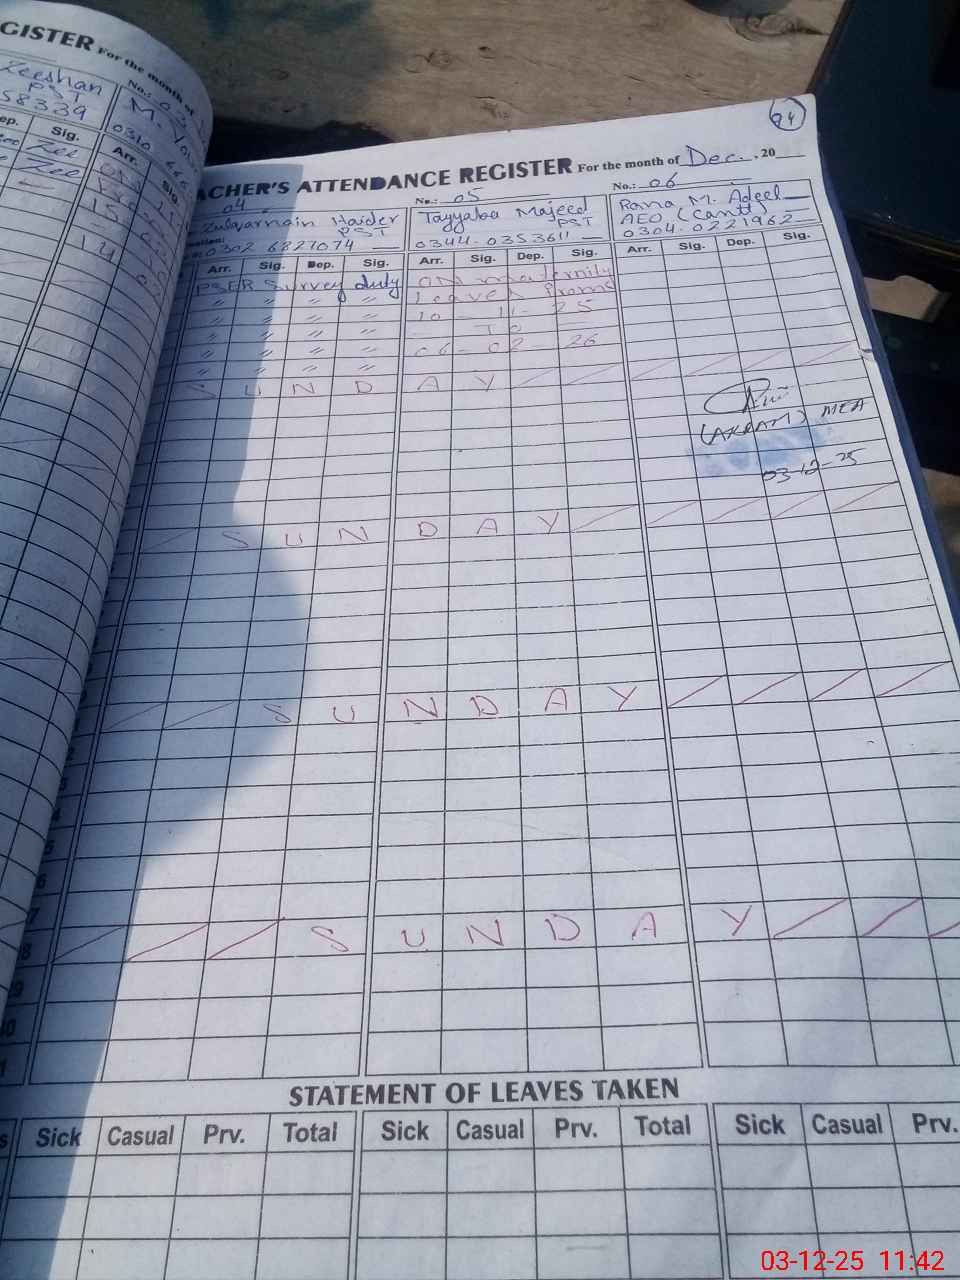 GISTER For the month of
Zeeshan
PST
58339
No.: 03
M.
0310
Sig.
Arr.
Sig.
94
ACHER'S ATTENDANCE REGISTER For the month of Dec. , 20
04
Zulqarnain Haider
PST
0302 6827074
No.: 05
Tayyaba Majeed
PST
0344-0353611
No.: 06
Rana M. Adeel
AEO (Cantt)
0304-0221962
Arr. Sig. Dep. Sig. Arr. Sig. Dep. Sig. Arr. Sig. Dep. Sig.
PSER Survey duty ON maternity
〃 〃 〃 〃 Leave
〃 〃 〃 〃 10 - 11 - 25
〃 〃 〃 〃 TO
〃 〃 〃 〃 06 - 02 - 26
〃 〃 〃 〃
SUNDAY
(AKRAM) MEA
03-12-25
SUNDAY
SUNDAY
SUNDAY
STATEMENT OF LEAVES TAKEN
Sick Casual Prv. Total Sick Casual Prv. Total Sick Casual Prv.
03-12-25 11:42